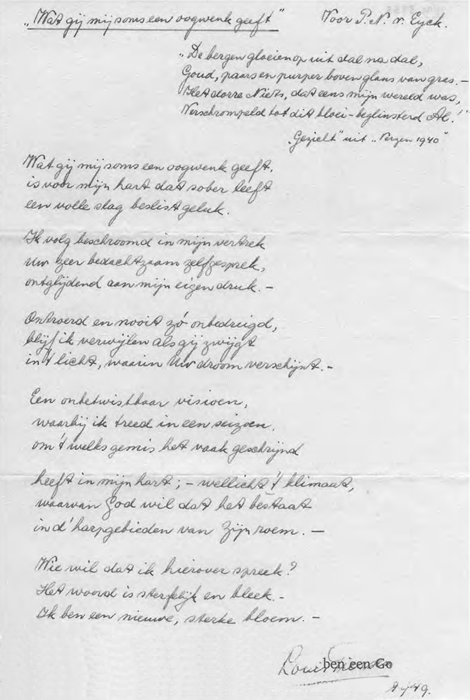 „Wat gij mij soms een oogwenk geeft"
Voor P.N. v. Eyck.
„De bergen gloeien op uit dal na dal,
Goud, paars en purper boven glans van gras. –
Het dorre Niets, dat eens mijn wereld was,
Verschrompeld tot dit bloei-beglinsterd Al."
uit „Verzen 1940"
Wat gij mij soms een oogwenk geeft,
is voor mijn hart dat sober leeft
een volle slag beslist geluk.
Ik volg beschroomd in mijn vertrek
Uw zeer bedachtzaam zelfgesprek,
ontglijdend aan mijn eigen druk. –
Ontroerd en nooit zó onbedreigd,
blijf ik verwijlen als gij zwijgt
in 't licht, waarin Uw droom verschijnt. –
Een onbetwistbaar visioen,
waarbij ik treed in een seizoen,
om 't welks gemis het vaak geschrijnd
heeft in mijn hart; – wellicht 't klimaat,
waarvan God wil dat het bestaat
in d' harpgebieden van Zijn roem. –
Wie wil dat ik hierover spreek?
Het woord is sterfelijk en bleek –
Ik ben een nieuwe, sterke bloem. –
ben een Go